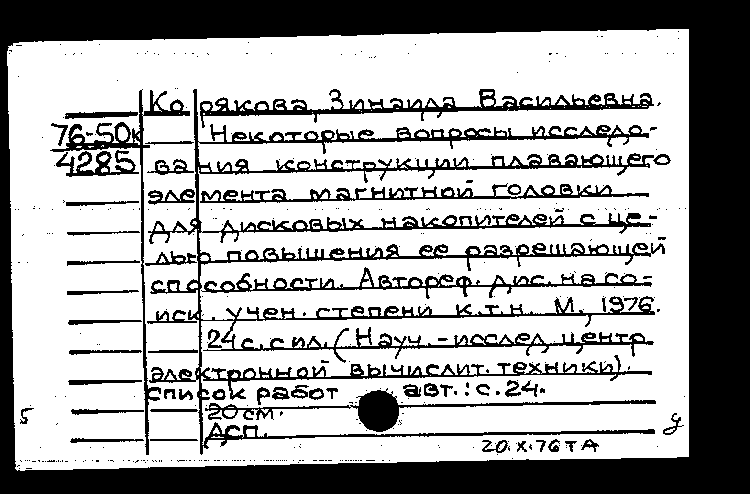 Корякова, Зинаида Васильевна.
76-50к Некоторые вопросы исследо-
4285 вания конструкции плавающего
элемента магнитной головки
для дисковых накопителей с це-
лью повышения ее разрешающей
способности. Автореф. дис. на со-
иск. учен. степени к.т.н. М., 1976.
24 с. с ил. (Науч.-исслед. центр
электронной вычислит. техники).
Список работ авт.: с. 24.
5 20 см.
ДСП.
20.X.76 ТА